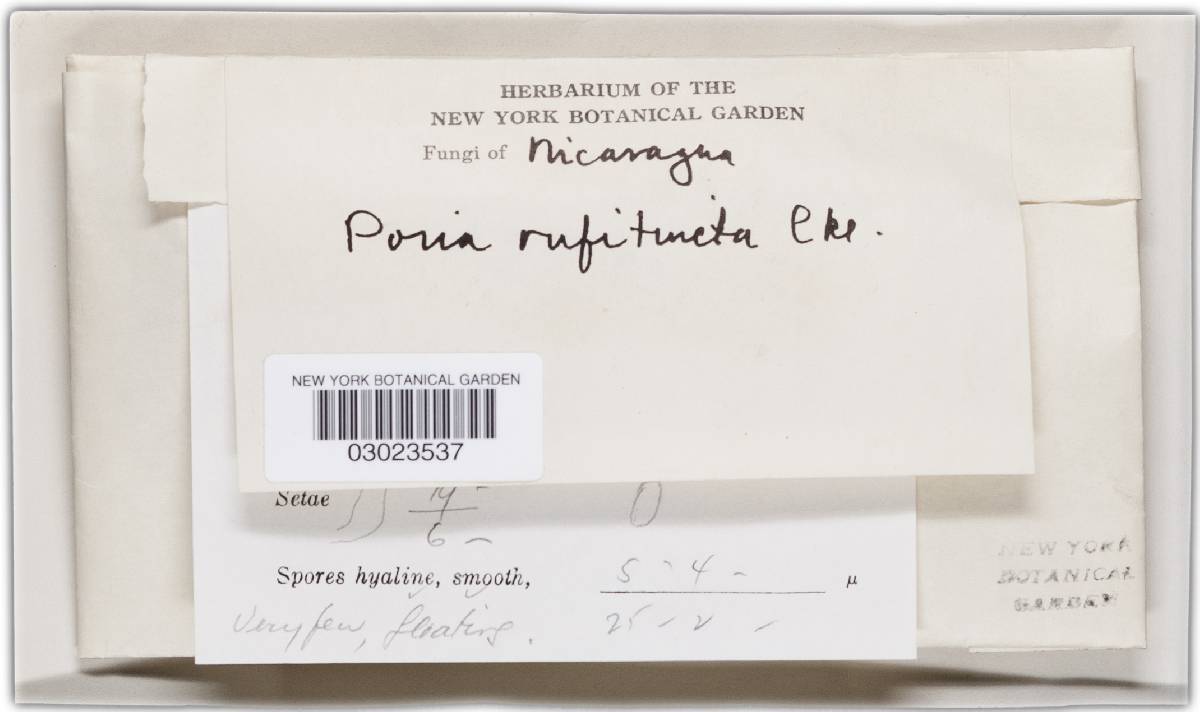 HERBARIUM OF THE
NEW YORK BOTANICAL GARDEN
Fungi of Nicaragua
Poria rufitincta Cke.
NEW YORK BOTANICAL GARDEN
03023537
Setae
6 -
Spores hyaline, smooth, 5 - 4 - µ
Very few, floating. 25 - 2 -
NEW YORK
BOTANICAL
GARDEN